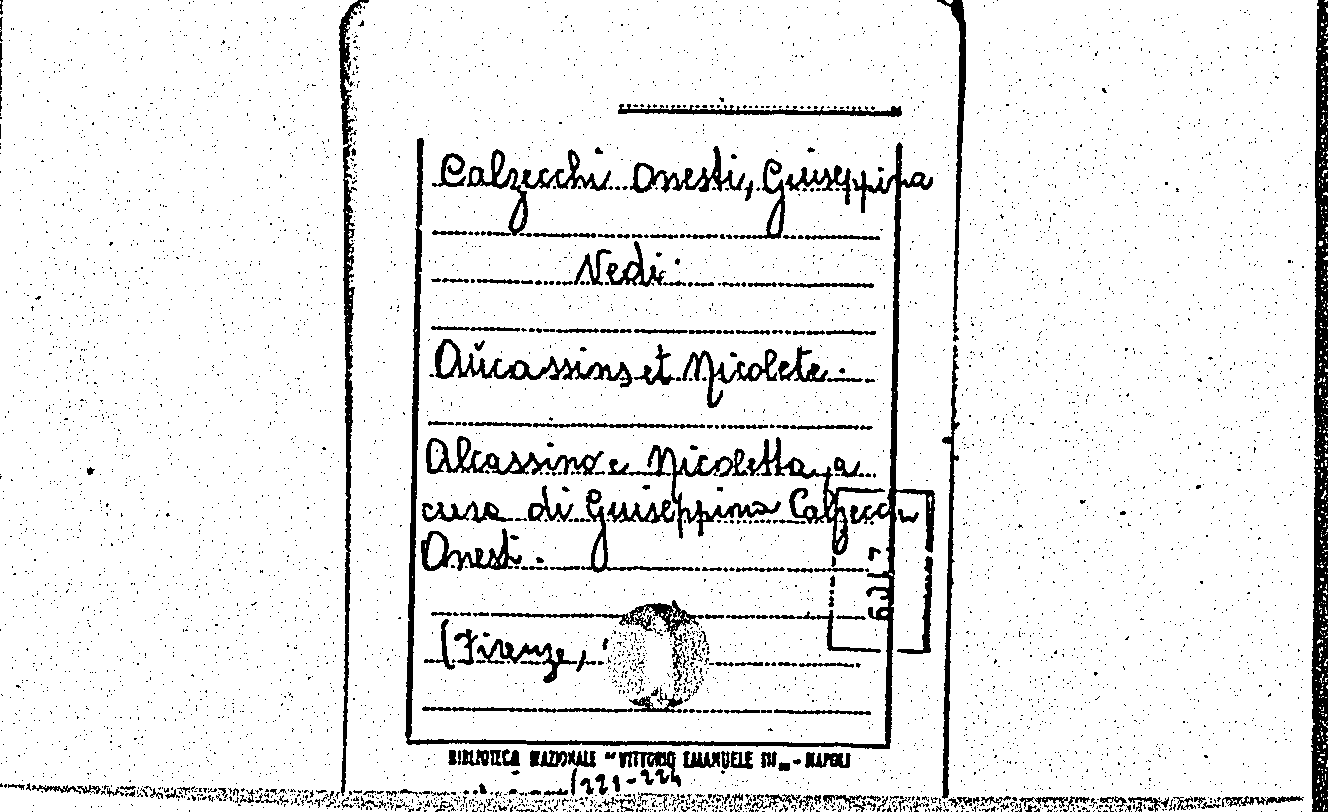 Calzecchi Onesti, Giuseppina
Vedi:
Aucassins et Nicolete.
Alcassino e Nicoletta, a
cura di Giuseppina Calzecchi
Onesti.
(Firenze,
BIBLIOTECA NAZIONALE "VITTORIO EMANUELE III" - NAPOLI
/221-224